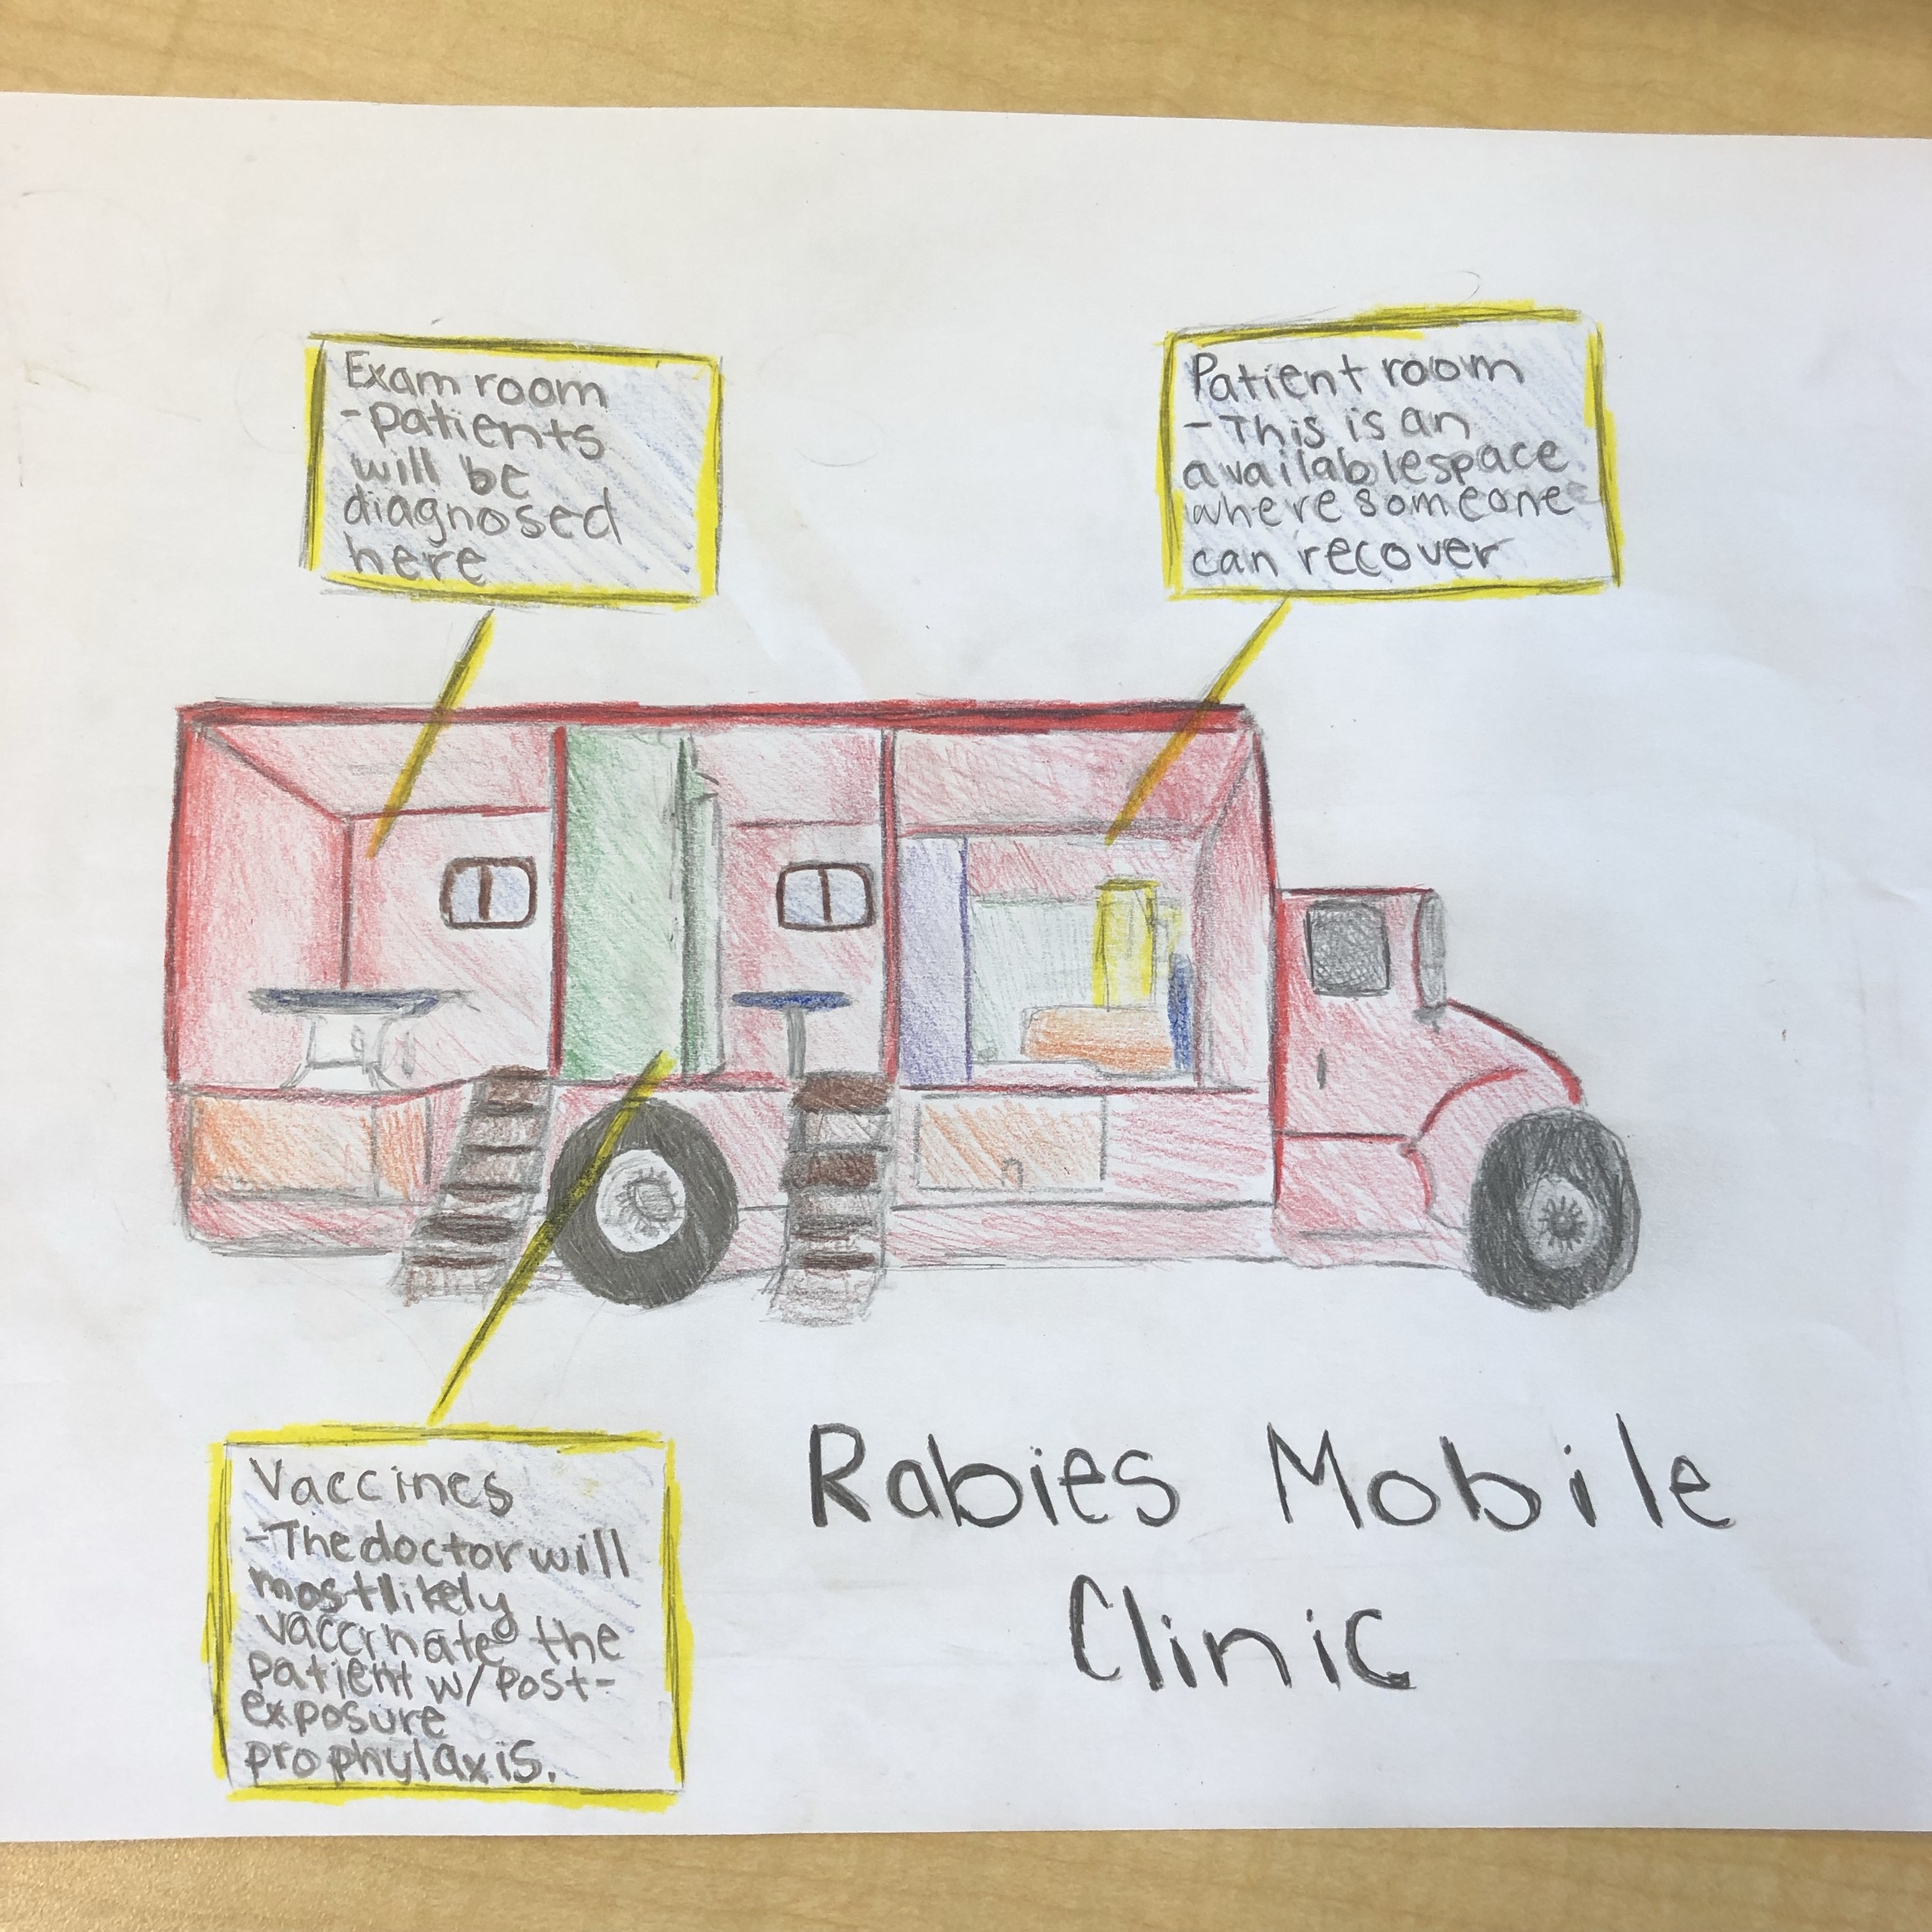 Exam room
-patients
will be
diagnosed
here
Patient room
-This is an
available space
where someone
can recover
Vaccines
-The doctor will
most likely
vaccinate the
patient w/ Post-
exposure
prophylaxis.
Rabies Mobile
Clinic